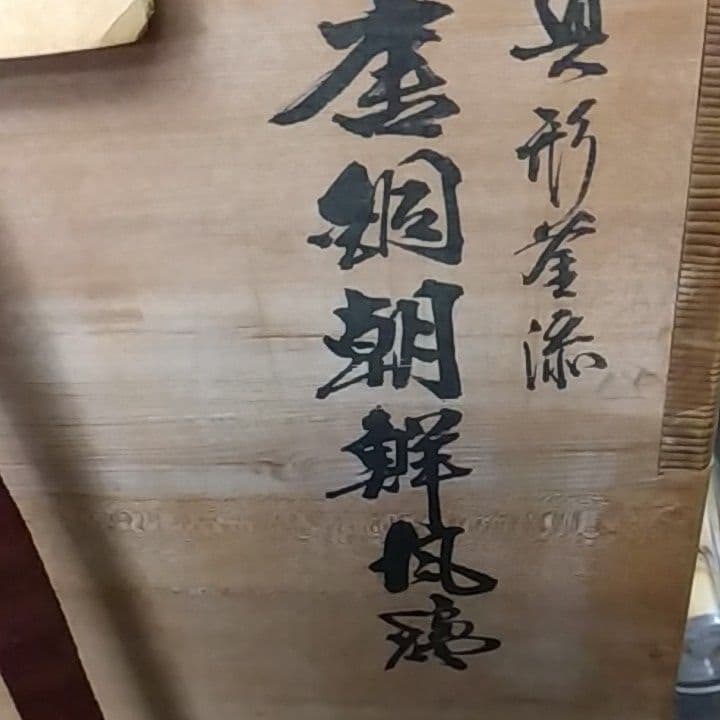 真形釜添
唐銅朝鮮風炉